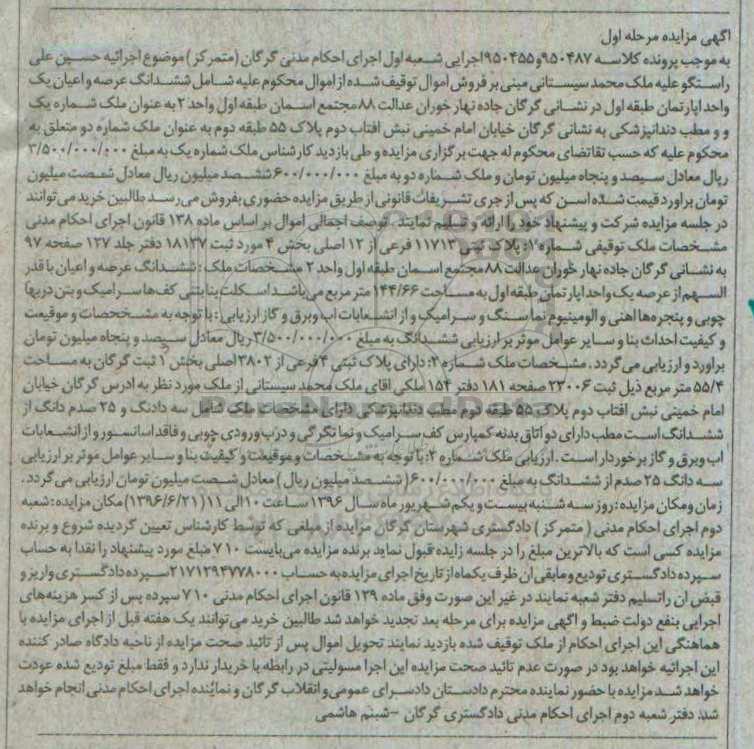 آگهی مزایده مرحله اول
به موجب پرونده کلاسه ۹۵۰۴۸۷و۹۵۰۴۵۵اجرایی شعبه اول اجرای احکام مدنی گرگان (متمرکز) موضوع اجرائیه حسین علی
راستگو علیه ملک محمد سیستانی مبنی بر فروش اموال توقیف شده از اموال محکوم علیه شامل ششدانگ عرصه و اعیان یک
واحد اپارتمان طبقه اول در نشانی گرگان جاده نهار خوران عدالت ۸۸ مجتمع اسمان طبقه اول واحد ۲ به عنوان ملک شماره یک
و و مطب دندانپزشکی به نشانی گرگان خیابان امام خمینی نبش افتاب دوم پلاک ۵۵ طبقه دوم به عنوان ملک شماره دو متعلق به
محکوم علیه که حسب تقاضای محکوم له جهت برگزاری مزایده و طی بازدید کارشناس ملک شماره یک به مبلغ ۳/۵۰۰/۰۰۰/۰۰۰
ریال معادل سیصد و پنجاه میلیون تومان و ملک شماره دو به مبلغ ۶۰۰/۰۰۰/۰۰۰ ششصد میلیون ریال معادل شصت میلیون
تومان براورد قیمت شده است که پس از جری تشریفات قانونی از طریق مزایده حضوری بفروش می‌رسد طالبین خرید می‌توانند
در جلسه مزایده شرکت و پیشنهاد خود را ارائه و تسلیم نمایند . توصف اجمالی اموال بر اساس ماده ۱۳۸ قانون اجرای احکام مدنی
مشخصات ملک توقیفی شماره ۱: پلاک ثبتی ۱۱۷۱۳ فرعی از ۱۲ اصلی بخش ۴ مورد ثبت ۱۸۱۳۷ دفتر جلد ۱۲۷ صفحه ۹۷
به نشانی گرگان جاده نهار خوران عدالت ۸۸ مجتمع اسمان طبقه اول واحد ۲ مشخصات ملک : ششدانگ عرصه و اعیان با قدر
السهم از عرصه یک واحد اپارتمان طبقه اول به مساحت ۱۴۴/۶۶ متر مربع می‌باشد اسکلت بنا بتنی کف‌ها سرامیک و بتن دربها
چوبی و پنجره‌ها اهنی و الومینیوم نما سنگ و سرامیک و از انشعابات اب و برق و گاز ارزیابی : با توجه به مشخصات و موقیعت
و کیفیت احداث بنا و سایر عوامل موثر بر ارزیابی ششدانگ به مبلغ ۳/۵۰۰/۰۰۰/۰۰۰ ریال معادل سیصد و پنجاه میلیون تومان
براورد و ارزیابی می‌گردد . مشخصات ملک شماره ۲: دارای پلاک ثبتی ۴ فرعی از ۳۸۰۲ اصلی بخش ۱ ثبت گرگان به مساحت
۵۵/۴ متر مربع ذیل ثبت ۲۳۰۰۶ صفحه ۱۸۱ دفتر ۱۵۴ ملکی اقای ملک محمد سیستانی از ملک مورد نظر به ادرس گرگان خیابان
امام خمینی نبش افتاب دوم پلاک ۵۵ طبقه دوم مطب دندانپزشکی دارای مشخصات ملک شامل سه دادنگ و ۲۵ صدم دانگ از
ششدانگ است مطب دارای دو اتاق بدنه کمپارس کف سرامیک و نما نگرگی و درب ورودی چوبی و فاقد اسانسور و از انشعابات
اب و برق و گاز برخوردار است . ارزیابی ملک شماره ۲: با توجه به مشخصات و موقیعت و کیفیت بنا و سایر عوامل موثر بر ارزیابی
سه دانگ ۲۵ صدم از ششدانگ به مبلغ ۶۰۰/۰۰۰/۰۰۰ ( ششصد میلیون ریال ) معادل شصت میلیون تومان ارزیابی می گردد .
زمان و مکان مزایده : روز سه شنبه بیست و یکم شهریور ماه سال ۱۳۹۶ ساعت ۱۰ الی ۱۱ (۱۳۹۶/۶/۲۱) مکان مزایده : شعبه
دوم اجرای احکام مدنی ( متمرکز ) دادگستری شهرستان گرگان مزایده از مبلغی که توسط کارشناس تعیین گردیده شروع و برنده
مزایده کسی است که بالاترین مبلغ را در جلسه زایده قبول نماید برنده مزایده می‌بایست ۱۰٪ مبلغ مورد پیشنهاد را نقدا به حساب
سپرده دادگستری تودیع و مابقی ان ظرف یکماه از تاریخ اجرای مزایده به حساب ۲۱۷۱۲۹۴۷۷۸۰۰۰ سپرده دادگستری واریز و
قبض ان را تسلیم دفتر شعبه نمایند در غیر این صورت وفق ماده ۱۲۹ قانون اجرای احکام مدنی ۱۰٪ سپرده پس از کسر هزینه‌های
اجرایی بنفع دولت ضبط و اگهی مزایده برای مرحله بعد تجدید خواهد شد طالبین خرید می‌توانند یک هفته قبل از اجرای مزایده با
هماهنگی این اجرای احکام از ملک توقیف شده بازدید نمایند تحویل اموال پس از تائید صحت مزایده از ناحیه دادگاه صادر کننده
این اجرائیه خواهد بود در صورت عدم تائید صحت مزایده این اجرا مسولیتی در رابطه با خریدار ندارد و فقط مبلغ تودیع شده عودت
خواهد شد مزایده با حضور نماینده محترم دادستان دادسرای عمومی و انقلاب گرگان و نماینده اجرای احکام مدنی انجام خواهد
شد دفتر شعبه دوم اجرای احکام مدنی دادگستری گرگان – شبنم هاشمی